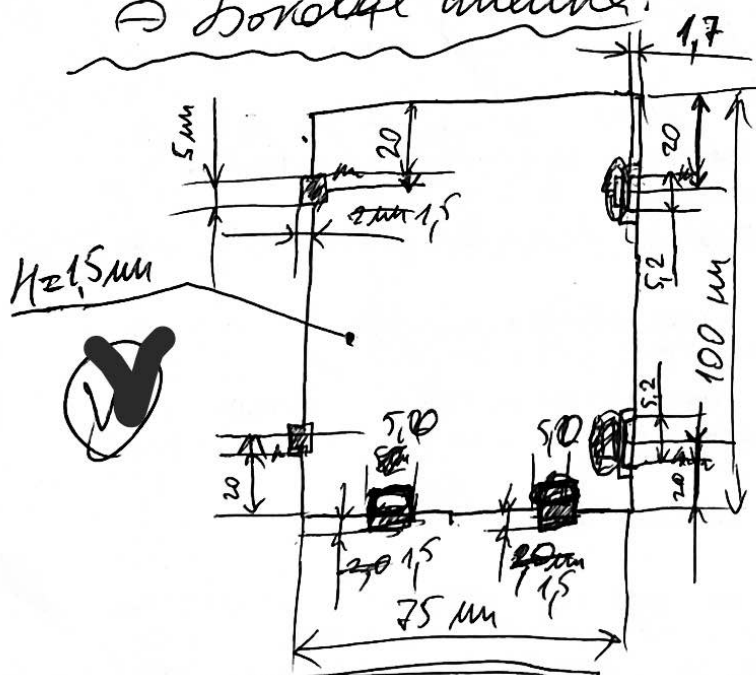 Боковые
1,7
5 мм
20
20
1,5
H=1,5мм
5,2
100 мм
5,2
V
5,00
5,0
20
20
2,0 1,5
2,0мм
1,5
75 мм